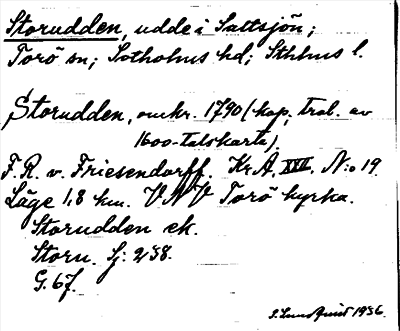 Storudden, udde i Saltsjön;
Torö sn; Sotholms hd; Sthlms l.
Storudden, omkr. 1790 (kop, trol. av
1600-talskarta).
F. R. v. Friesendorff. Kr. A. XVII. N:o 19
Läge 1,8 km. VNV Torö kyrka.
Storudden ek.
Storu. Sj: 238.
G. 67.
S. Lundquist 1936.